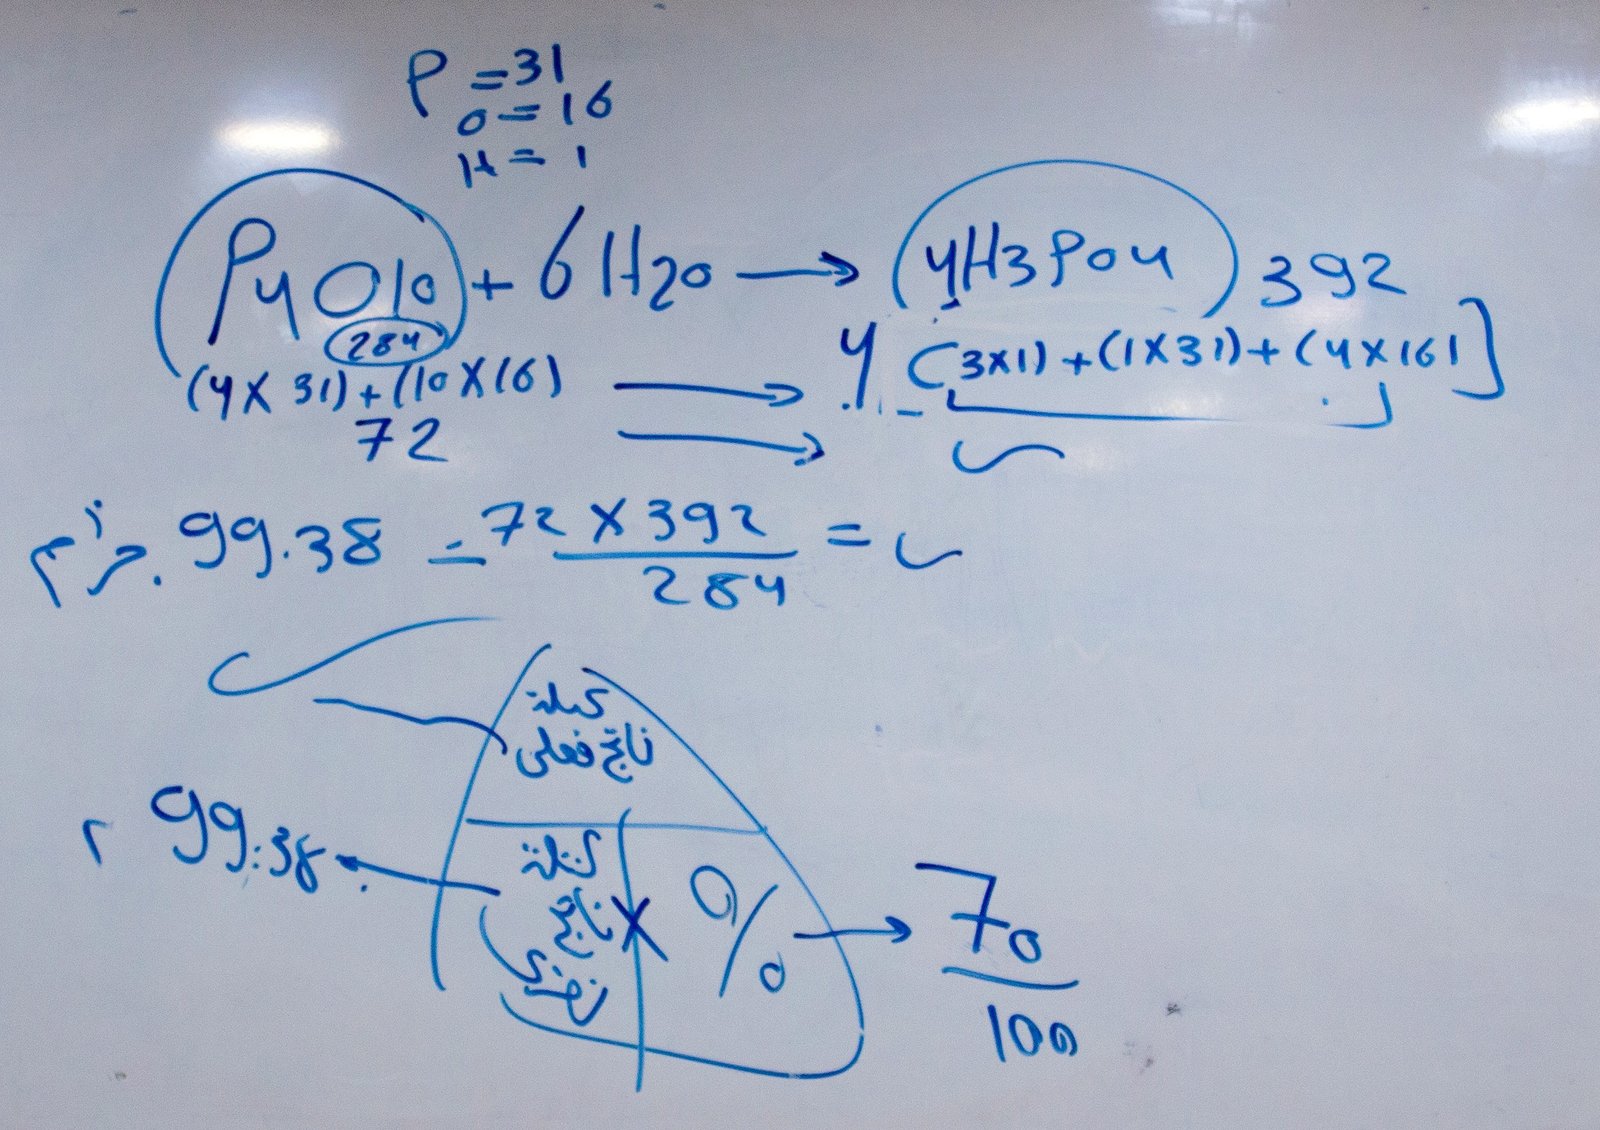 P = 31
O = 16
H = 1
P4O10 + 6H2O → 4H3PO4 392
284
(4 × 31) + (10 × 16) → 4 [(3×1) + (1×31) + (4×16)]
72 →
جرام 99.38 = 72 × 392 / 284 = س
كتلة
ناتج فعلي
99.38 ← كتلة × % → 70 / 100
ناتج
نظري